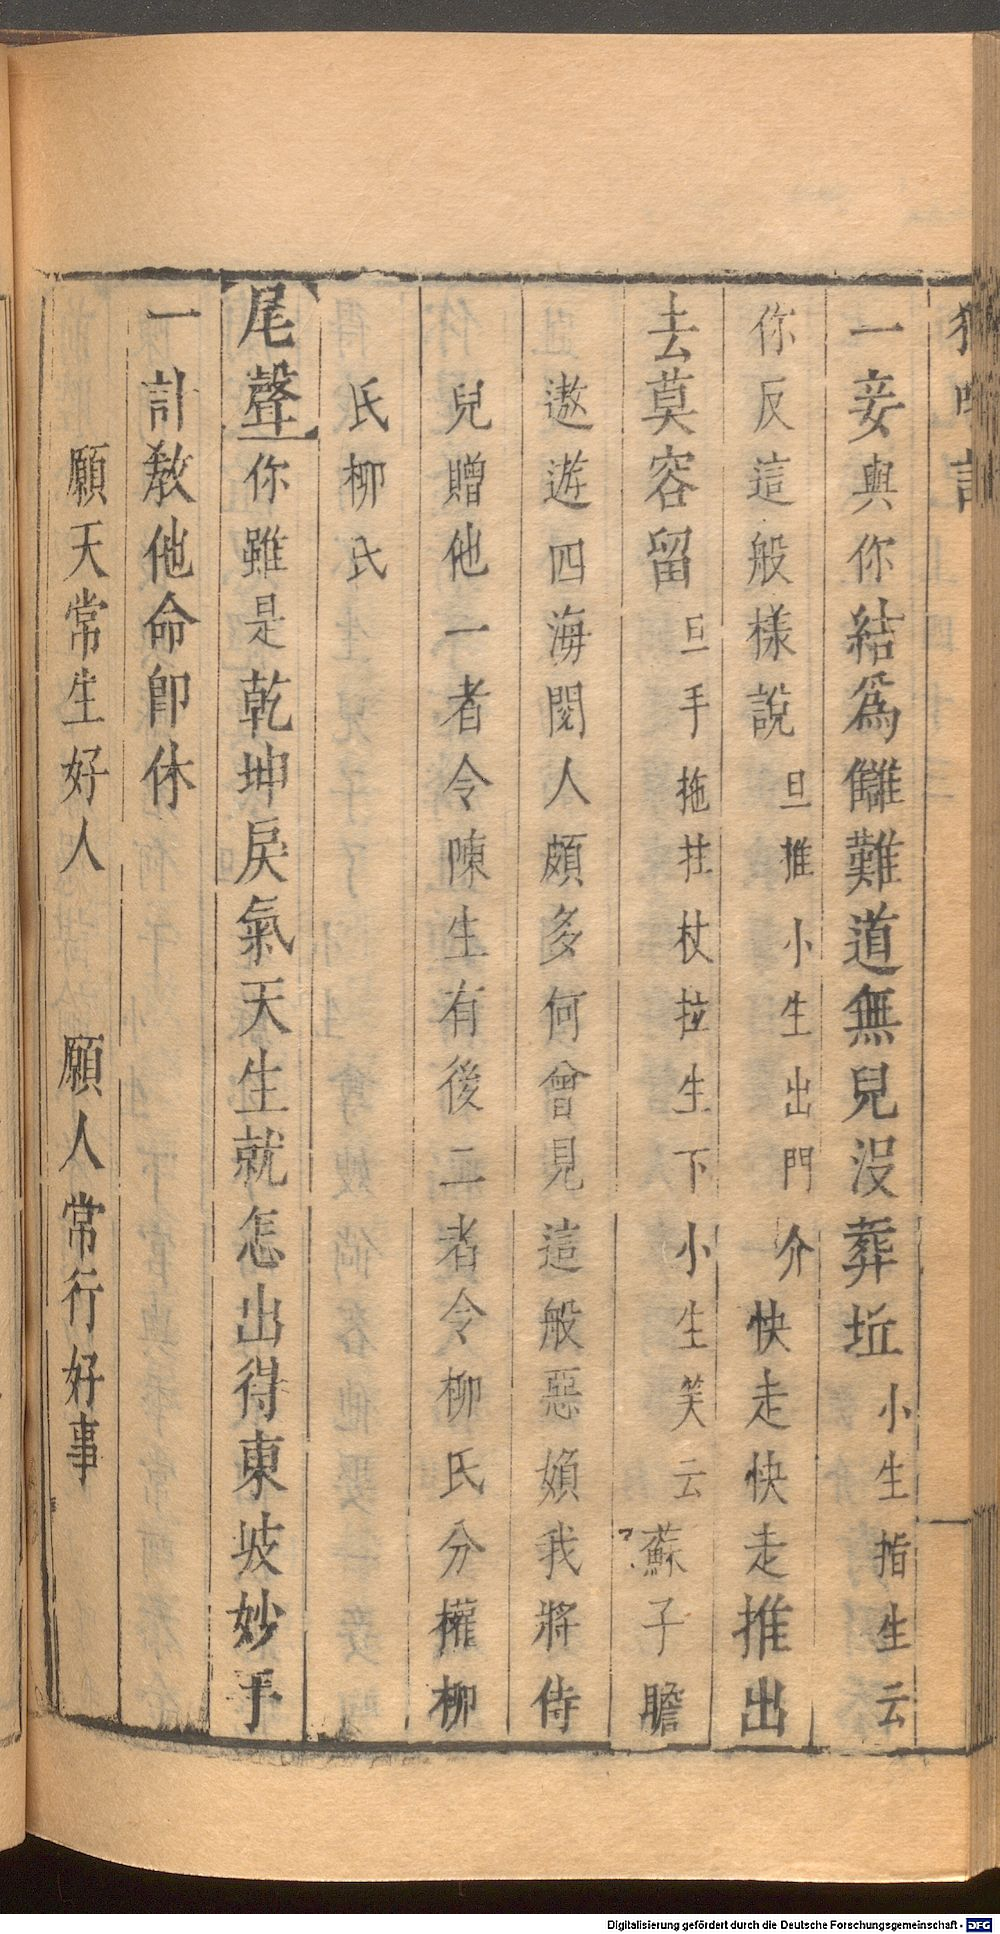 一妾與你結爲讎難道無兒沒葬坵小生指生云
你反這般樣說旦推小生出門介快走快走推出
去莫容留旦手拖拄杖拉生下小生笑云蘇子瞻
遨遊四海閱人頗多何曾見這般惡嬪我將侍
兒贈他一者令陳生有後二者令柳氏分權柳
氏柳氏
尾聲你雖是乾坤戾氣天生就怎出得東坡妙手
一計教他命卽休
願天常生好人　願人常行好事
Digitalisierung gefördert durch die Deutsche Forschungsgemeinschaft - DFG